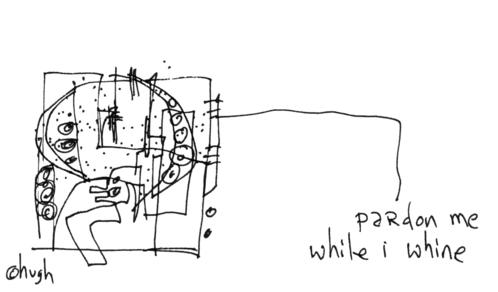 pardon me
while i whine
@hugh